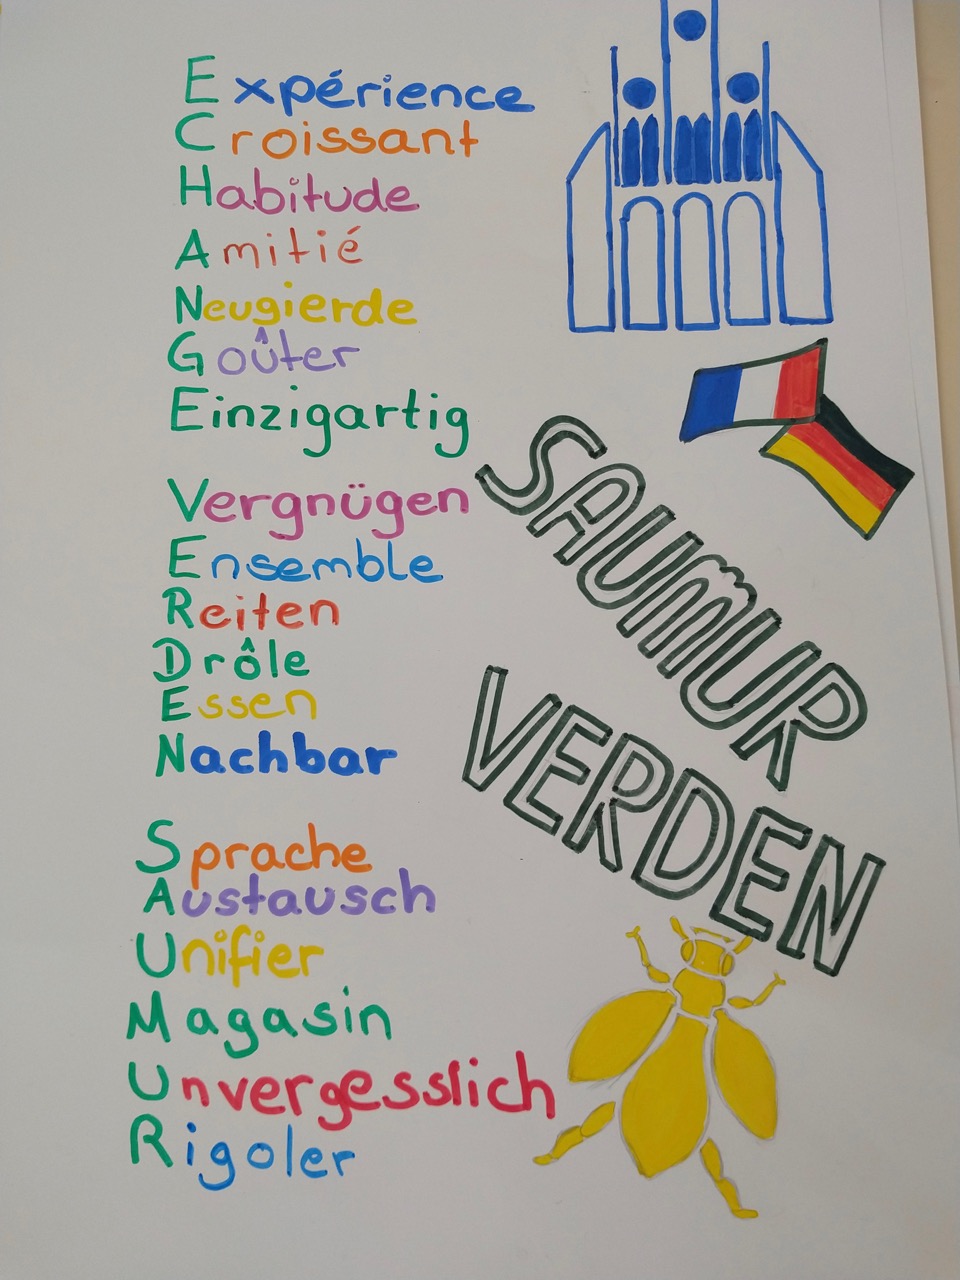 Expérience
Croissant
Habitude
Amitié
Neugierde
Goûter
Einzigartig
Vergnügen
Ensemble
Reiten
Drôle
Essen
Nachbar
Sprache
Austausch
Unifier
Magasin
Unvergesslich
Rigoler
SAUMUR
VERDEN